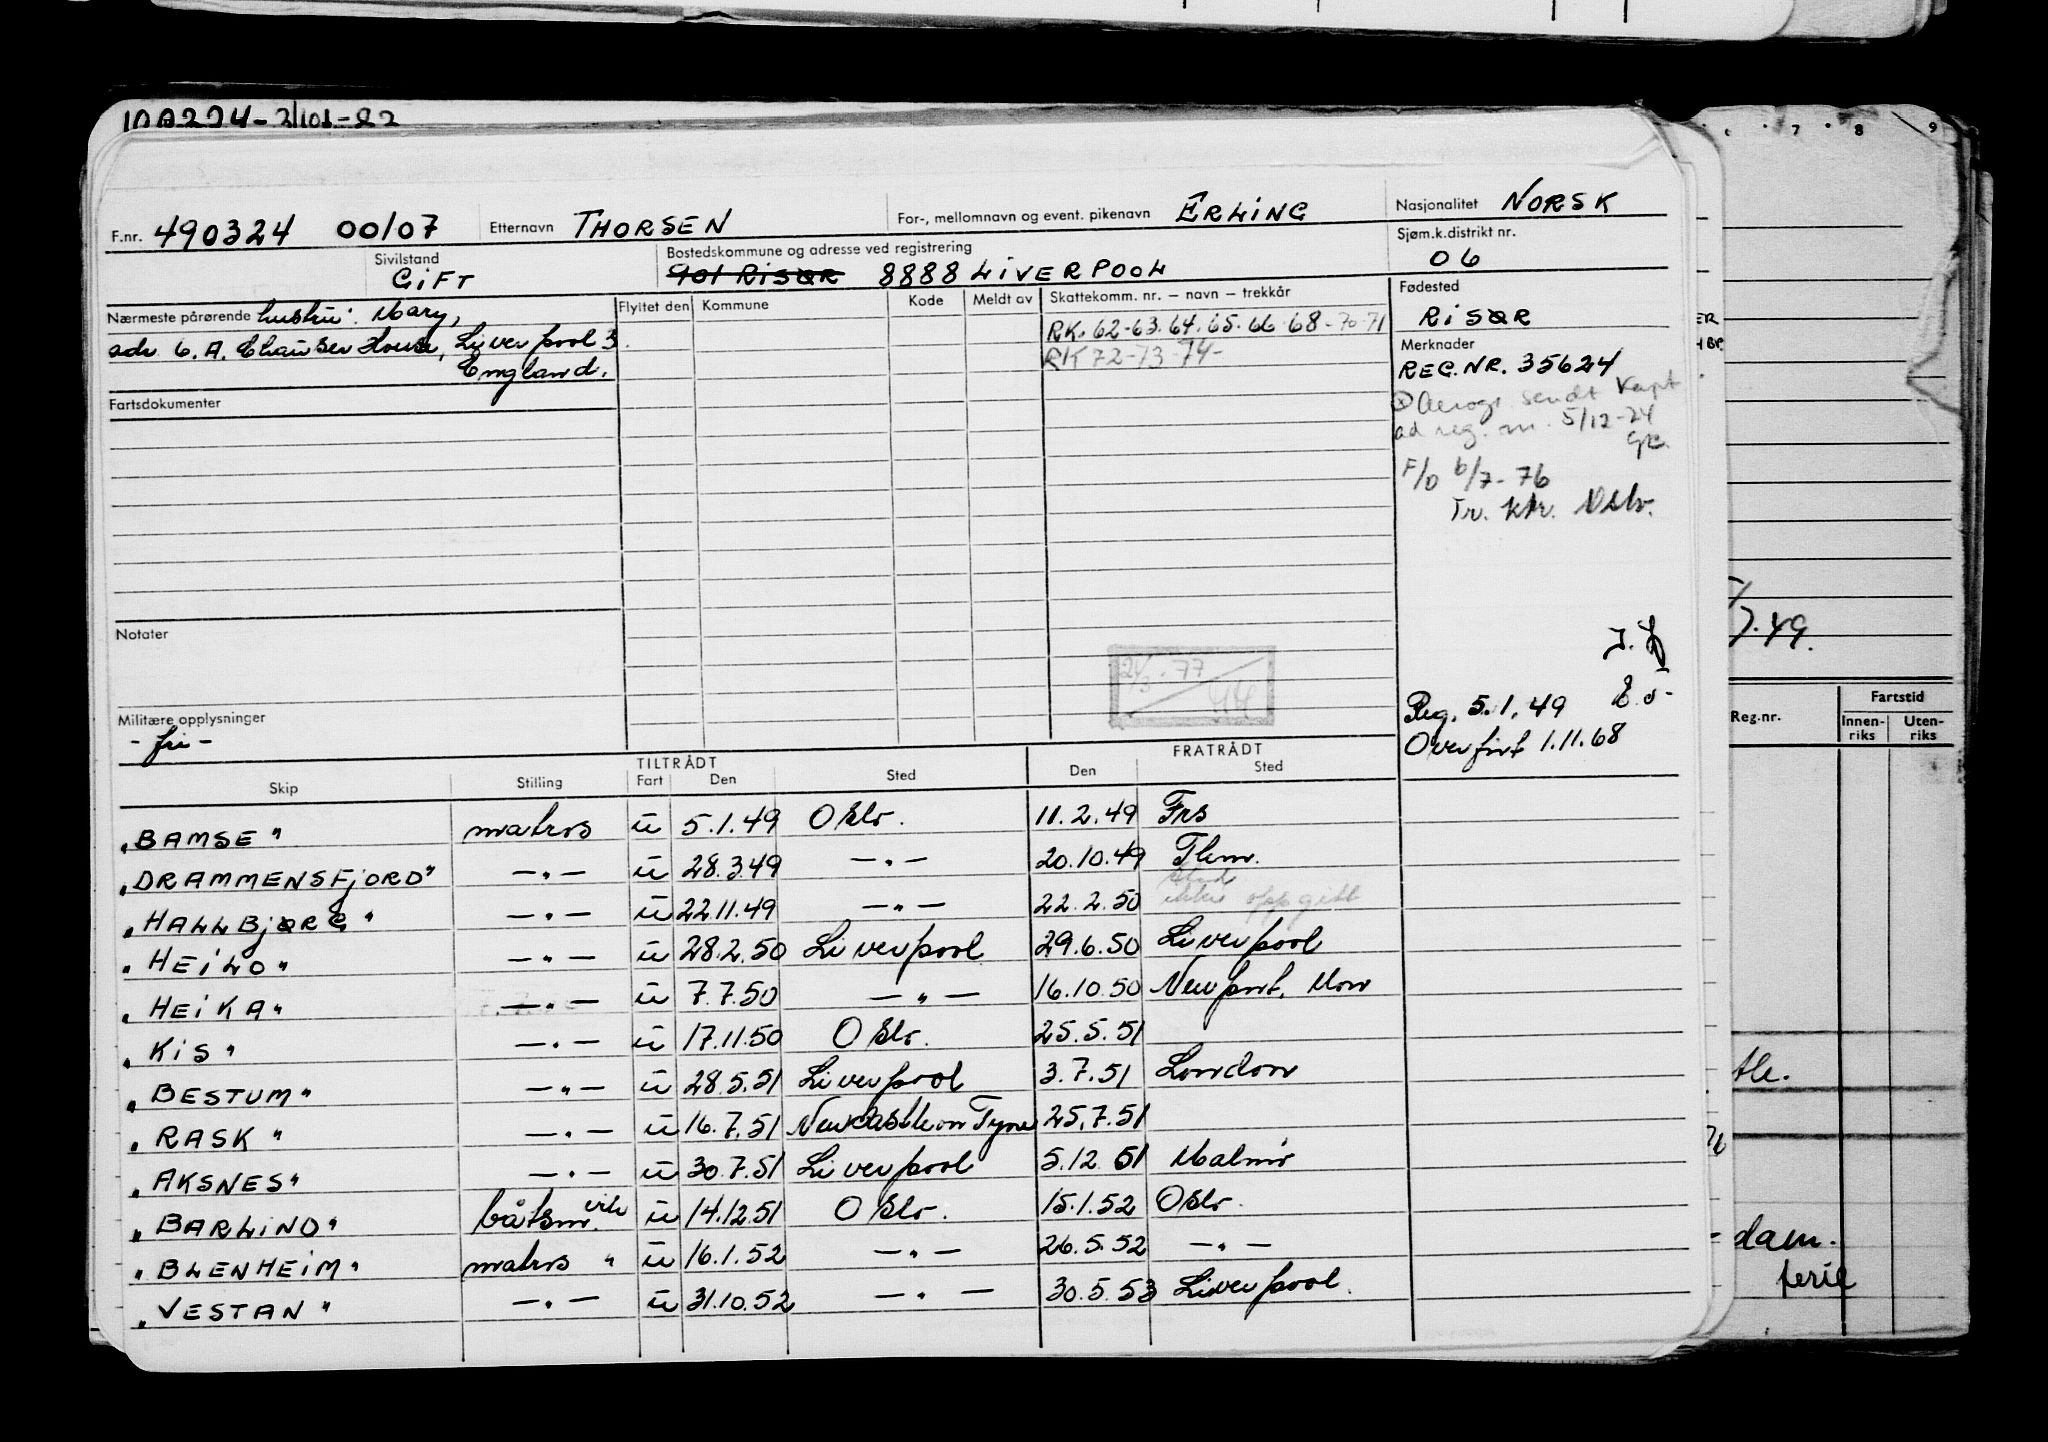 F.nr. 490324 00/07 Etternavn THORSEN For-, mellomnavn og event. pikenavn ERLING Nasjonalitet NORSK
Sivilstand GIFT Bostedskommune og adresse ved registrering 901 RISØR 8888 LIVERPOOL Sjøm.k.distrikt nr. 06
Nærmeste pårørende hustru: Mary, Flyttet den Kommune Kode Meldt av Skattekomm. nr. – navn – trekkår Fødested
RK. 62-63. 64. 65. 66. 68 - 70 - 71 RISØR
adr 6. A. Chaucer House, Liverpool 3. RK 72-73-74- Merknader
England. REG.NR. 35624
Fartsdokumenter
Aerogr. sendt Kapt
ad reg. nr. 5/12-74
F/O 6/7-76
Tr. Ktr. Oslo.
Notater
24/3-77
Militære opplysninger Reg. 5.1.49
- fri - Overført 1.11.68
TILTRÅDT FRATRÅDT
Skip Stilling Fart Den Sted Den Sted
"BAMSE" matros u 5.1.49 Oslo. 11.2.49 Frs
"DRAMMENSFJORD" —"— u 28.3.49 —"— 20.10.49 Thm.
"HALLBJØRG" —"— u 22.11.49 —"— 22.2.50 Sted ikke oppgitt
"HEILO" —"— u 28.2.50 Liverpool 29.6.50 Liverpool
"HEIKA" —"— u 7.7.50 —"— 16.10.50 Newport, Mon
"KIS" —"— u 17.11.50 Oslo. 25.5.51
"BESTUM" —"— u 28.5.51 Liverpool 3.7.51 London
"RASK" —"— u 16.7.51 Newcastle on Tyne 25.7.51
"AKSNES" —"— u 30.7.51 Liverpool 5.12.51 Malmö
"BARLIND" båtsm. vik u 14.12.51 Oslo. 15.1.52 Oslo.
"BLENHEIM" matros " u 16.1.52 —"— 26.5.52 —"—
"VESTAN" —"— u 31.10.52 —"— 30.5.53 Liverpool.
7 8 9
7.49.
Reg.nr. Fartstid
Innen-riks Uten-riks
dam.
ferie